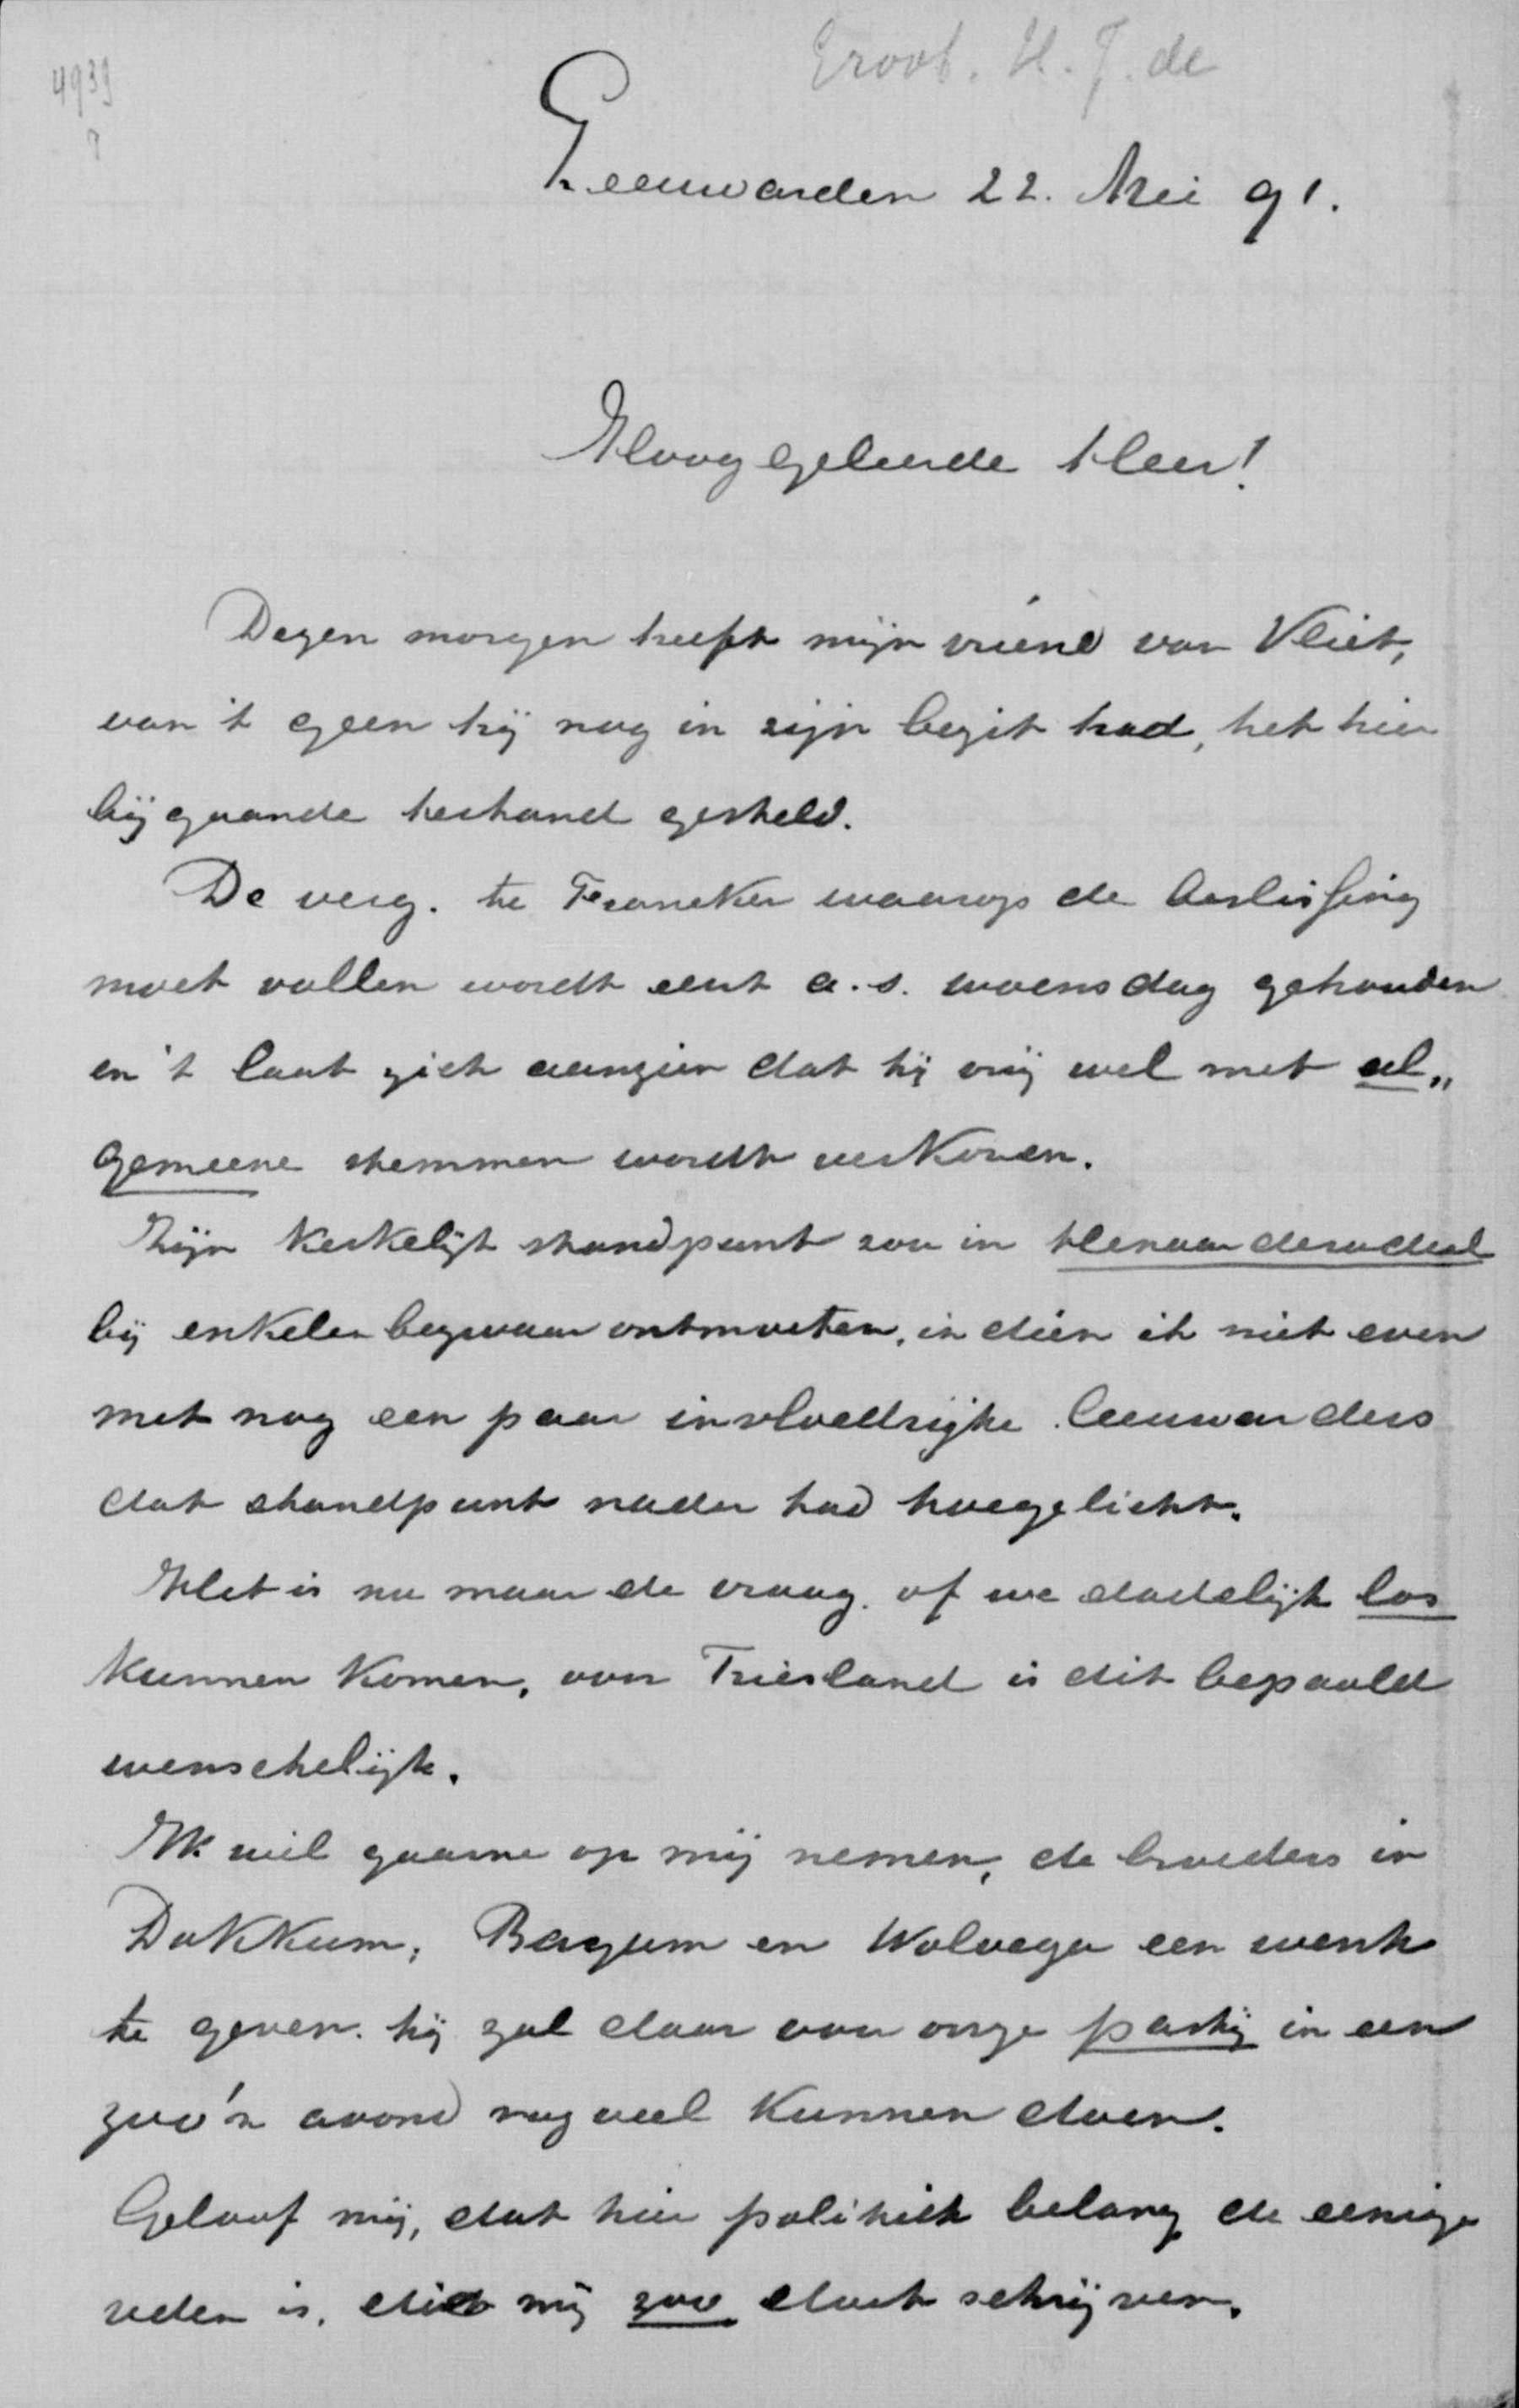 4939
Groot. H. J. de
Leeuwarden 22. Mei 91.
Hooggeleerde Heer!
Dezen morgen heeft mijn vriend van Vliet,
van 't geen hij nog in zijn bezit had, het hier
bijgaande terhand gesteld.
De verg. te Franeker waarop de beslissing
moet vallen wordt eerst a.s. woensdag gehouden
en 't laat zich aanzien dat hij vrij wel met al„
gemeene stemmen wordt verkozen.
Zijn kerkelijk standpunt zou in Henaarderadeel
bij enkelen bezwaar ontmoeten, indien ik niet even
met nog een paar invloedrijke Leeuwarders
dat standpunt nader had toegelicht.
Het is nu maar de vraag. of we dadelijk los
kunnen komen, voor Friesland is dit bepaald
wenschelijk.
Ik wil gaarne op mij nemen, de broeders in
Dokkum, Bergum en Wolvega een wenk
te geven. hij zal daar voor onze partij in een
zoo'n avond nog veel kunnen doen.
Geloof mij, dat hier politiek belang de eenige
reden is, die mij zoo doet schrijven.